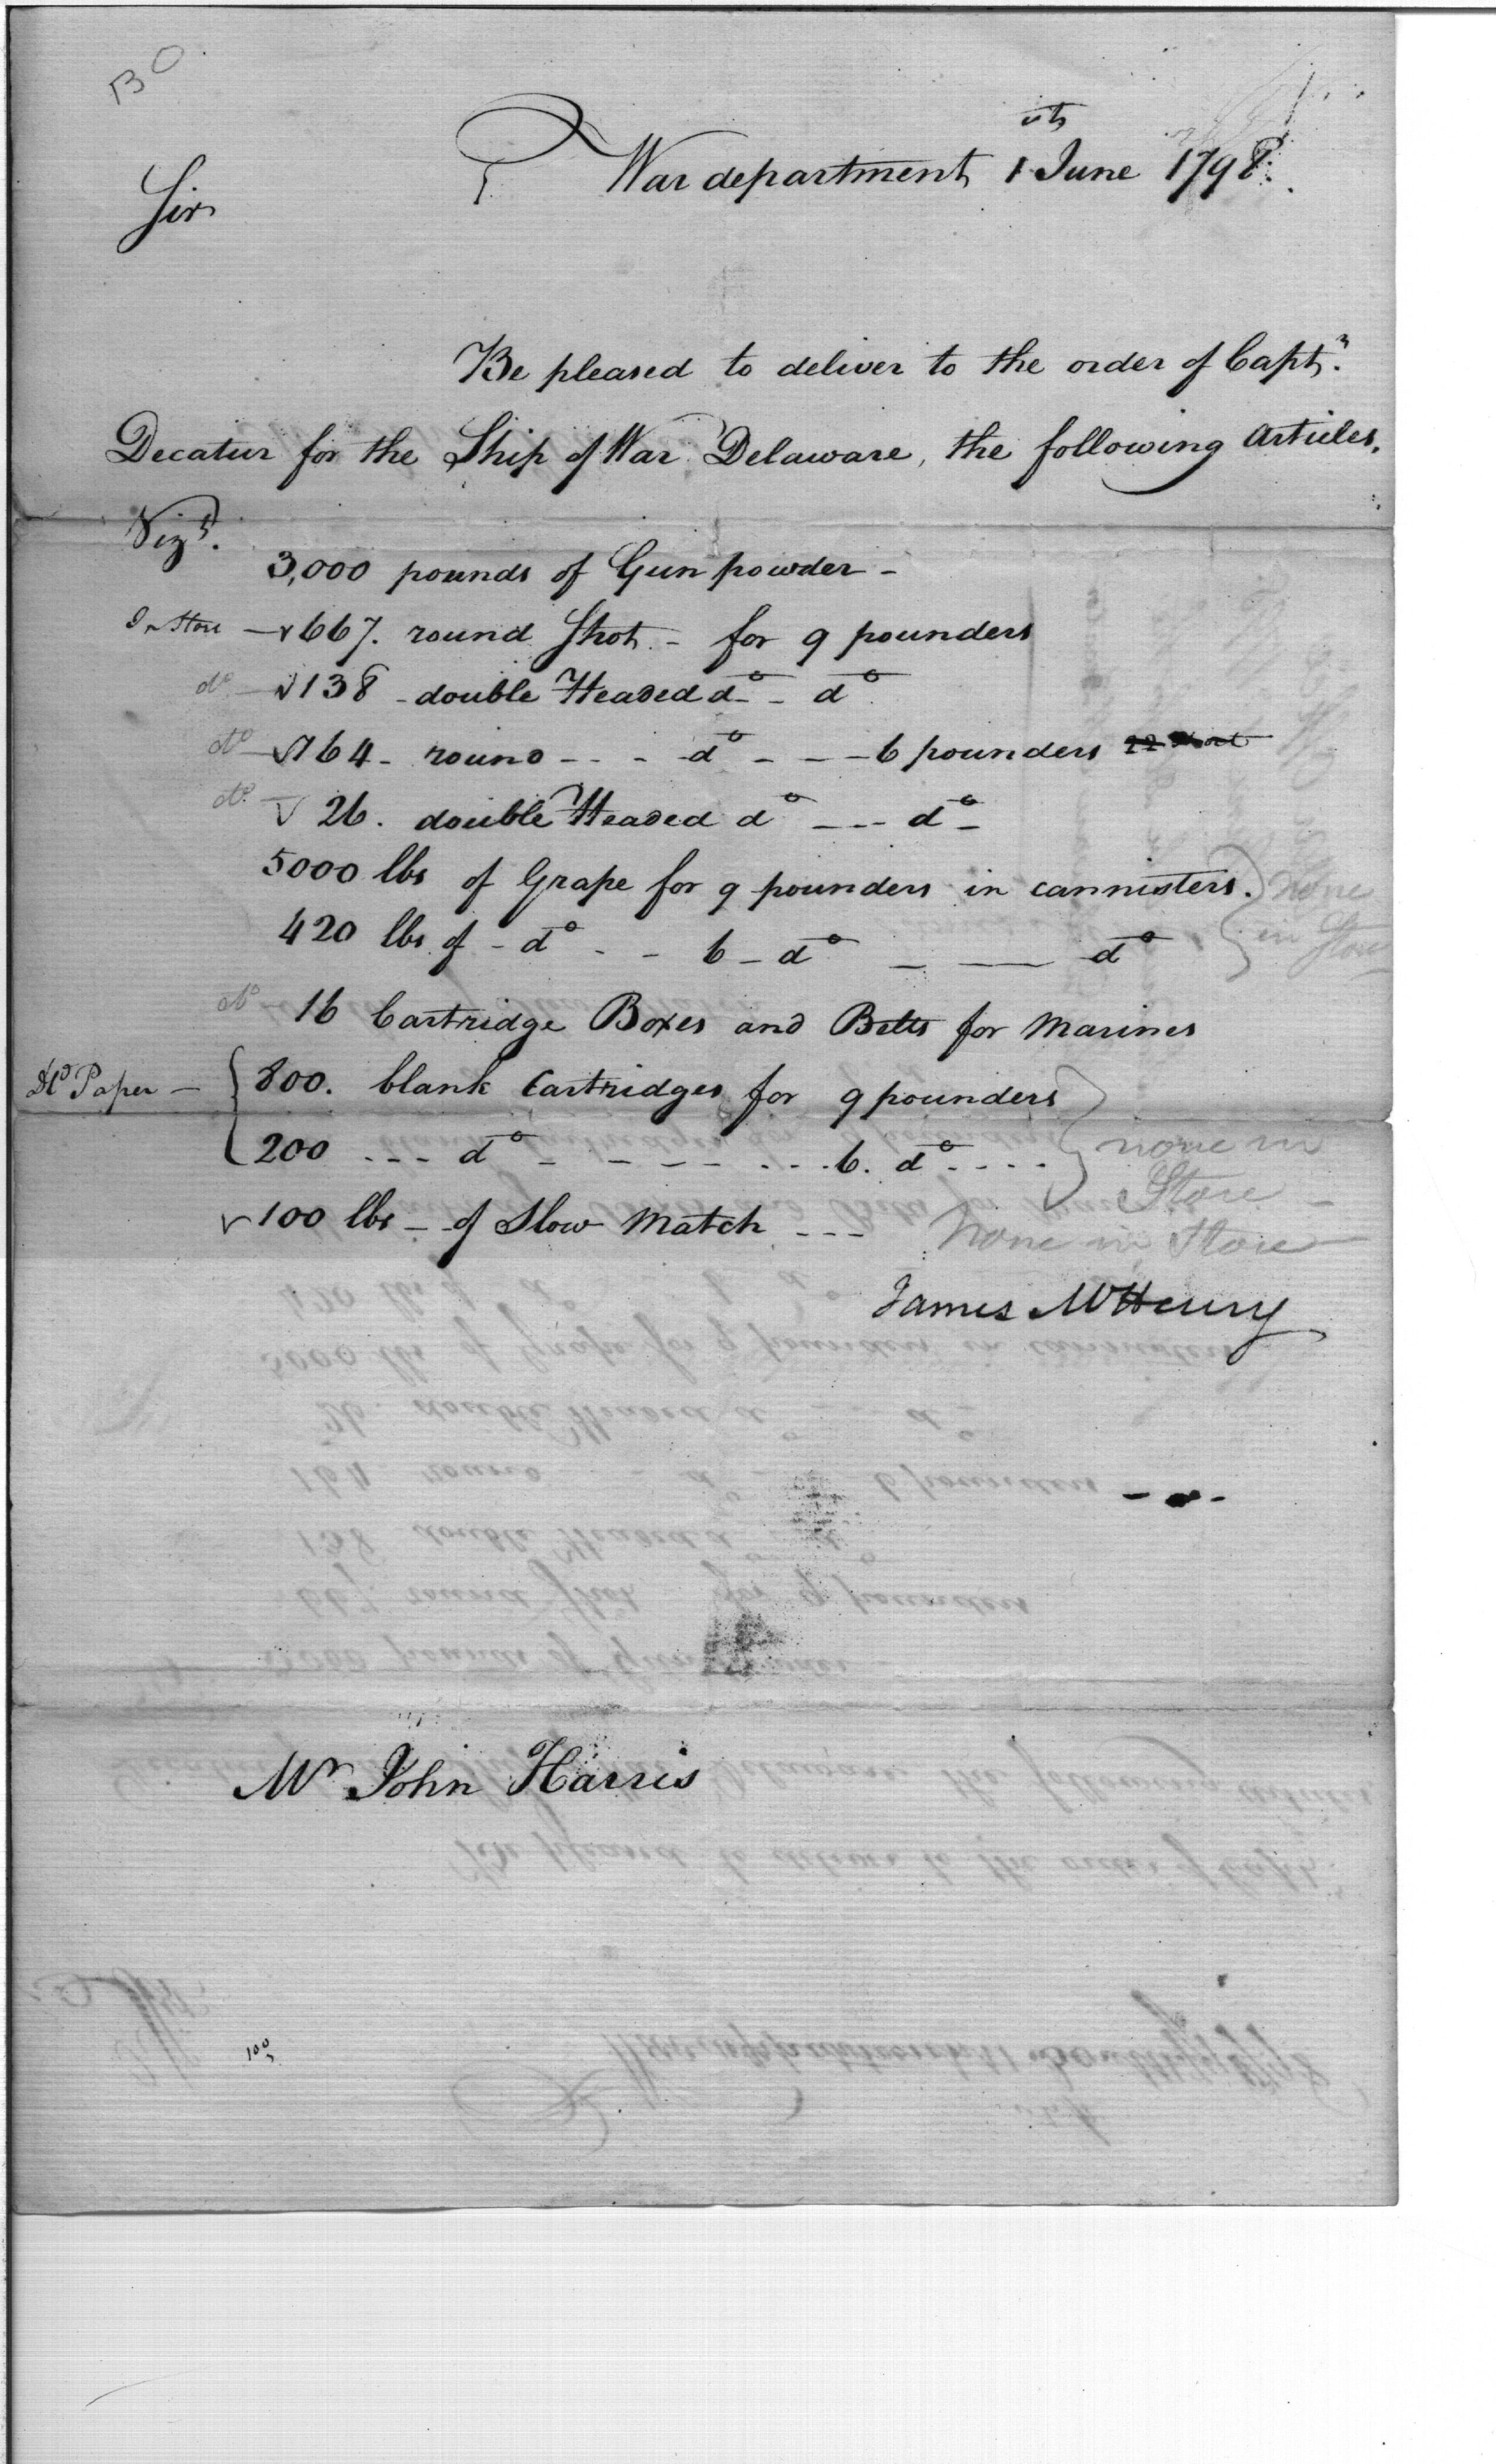 BO
War department 1 June 1798.
Sir
Be pleased to deliver to the order of Captn.
Decatur for the Ship of War Delaware, the following Articles.
Vizt.
3,000 pounds of Gun powder -
In Store - 667. round Shot - for 9 pounders
do - 138 - double Headed do - do
do - 164 - round - - - do - - - 6 pounders
do. 26. double Headed do --- do -
5000 lbs of Grape for 9 pounders in cannisters. } none
420 lbs of - do - - 6 - do - — do } in Store
do 16 Cartridge Boxes and Belts for Marines
Paper - { 800. blank Cartridges for 9 pounders }
{ 200 --- do - - - - - - - 6. do - - - - } none in
Store -
100 lbs - of Slow Match --- None in Store
James McHenry
Mr John Harris
100